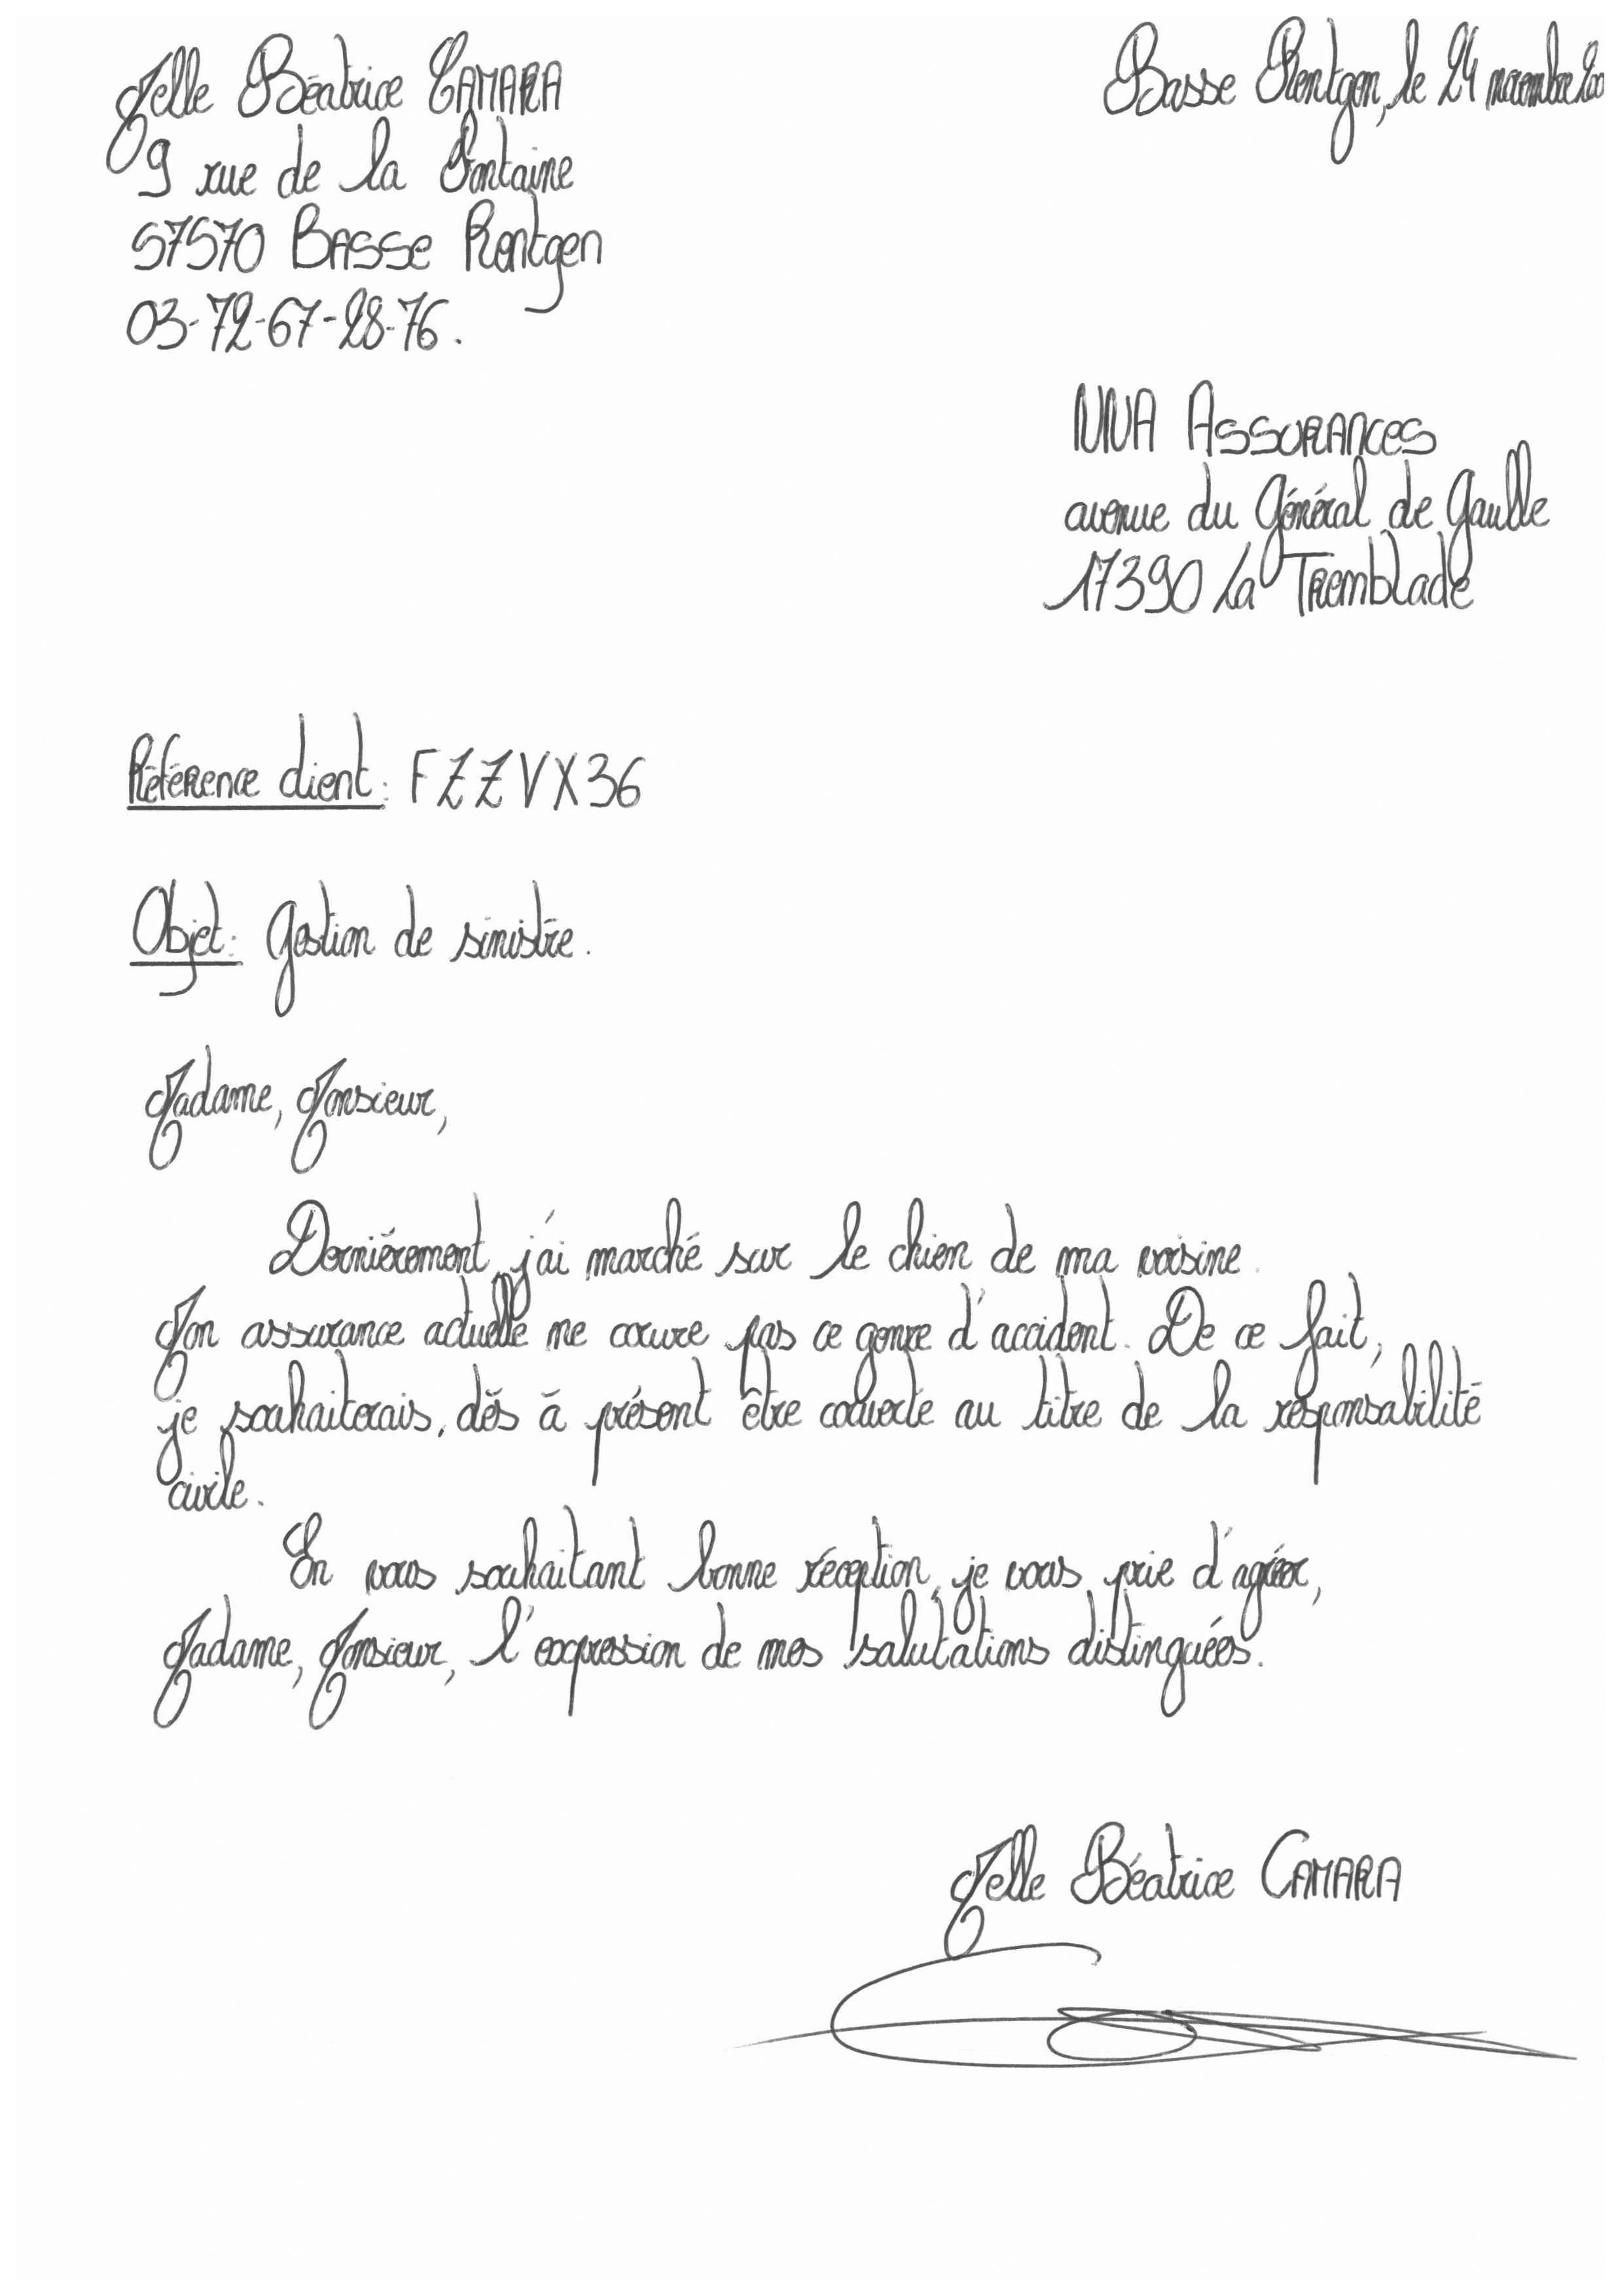 Melle Béatrice CAMARA
9 rue de la Fontaine
57570 BASSE Rentgen
03-72-67-28-76.
Basse Rentgen, le 24 novembre
ASSURANCES
avenue du Général de Gaulle
17390 La Tremblade
Référence client: FZZVX36
Objet: Gestion de sinistre.
Madame, Monsieur,
Dernièrement, j'ai marché sur le chien de ma voisine.
Mon assurance actuelle ne couvre pas ce genre d'accident. De ce fait,
je souhaiterais, dès à présent être couverte au titre de la responsabilité
civile.
En vous souhaitant bonne réception, je vous prie d'agréer,
Madame, Monsieur, l'expression de mes salutations distinguées.
Melle Béatrice CAMARA